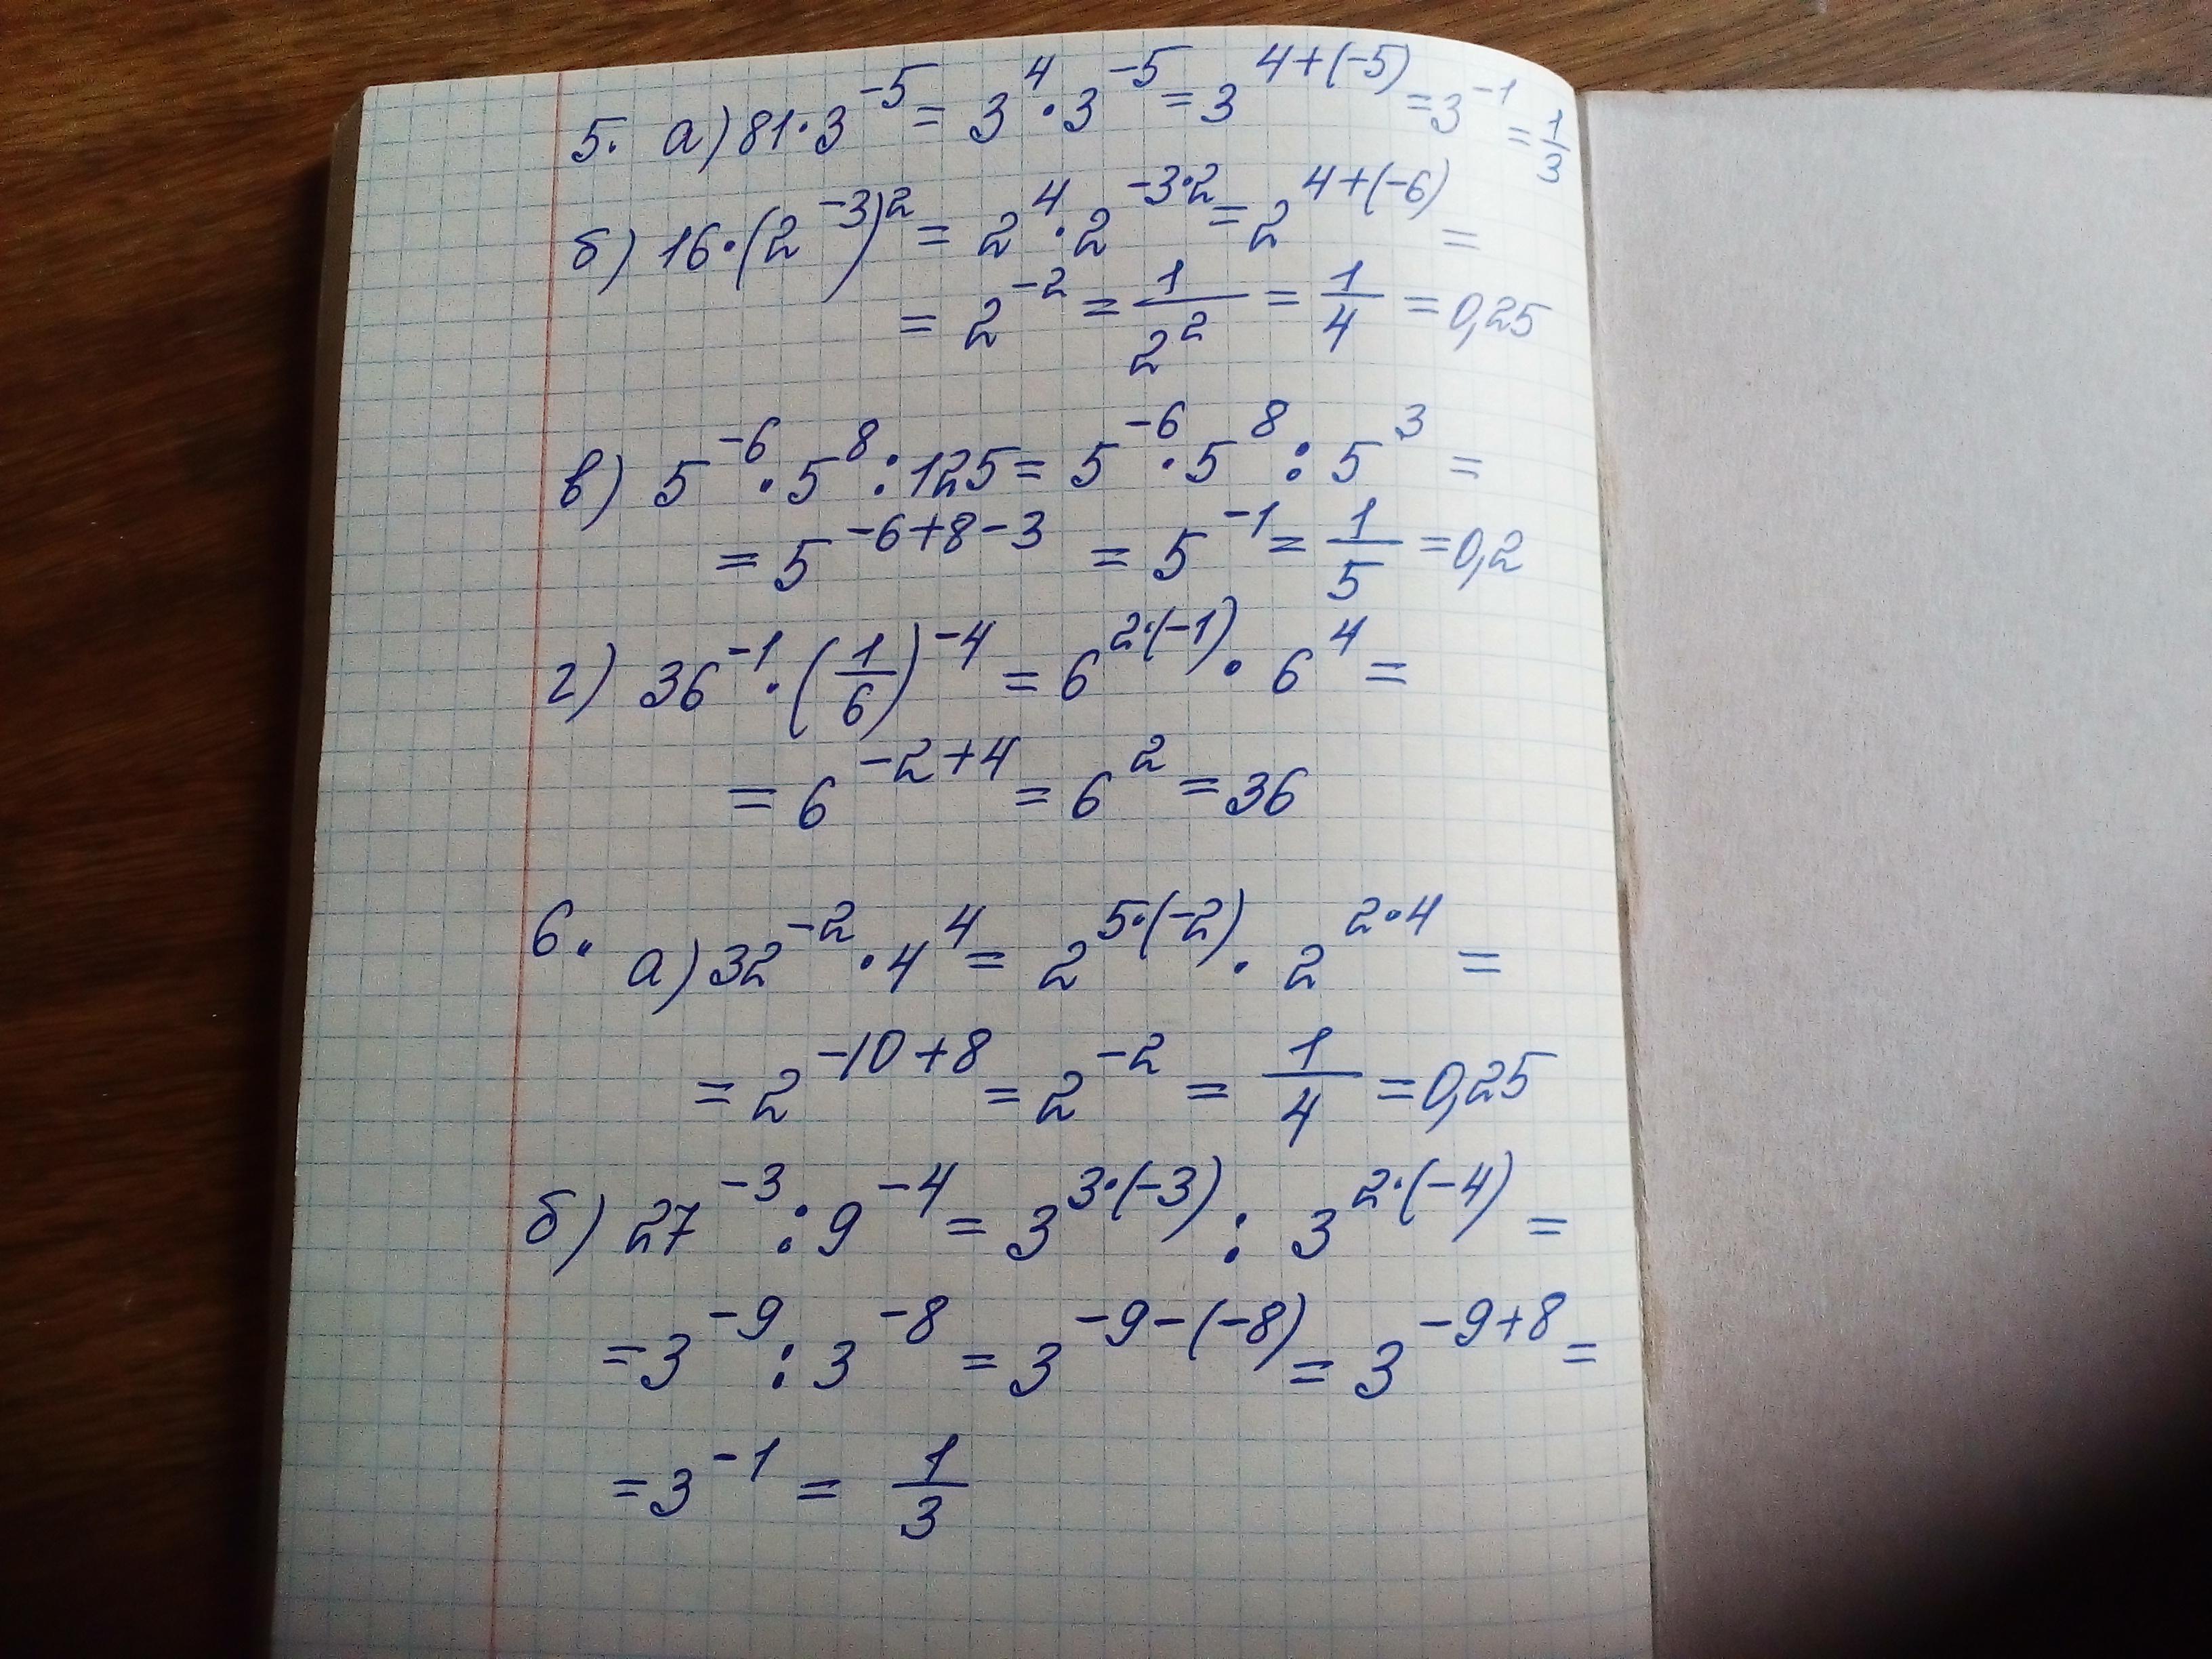 5. а) 81·3⁻⁵ = 3⁴·3⁻⁵ = 3⁴⁺⁽⁻⁵⁾ = 3⁻¹ = 1/3
б) 16·(2⁻³)² = 2⁴·2^(-3·2) = 2⁴⁺⁽⁻⁶⁾ =
= 2⁻² = 1/2² = 1/4 = 0,25
в) 5⁻⁶·5⁸:125 = 5⁻⁶·5⁸:5³ =
= 5⁻⁶⁺⁸⁻³ = 5⁻¹ = 1/5 = 0,2
г) 36⁻¹·(1/6)⁻⁴ = 6^(2·(-1))·6⁴ =
= 6⁻²⁺⁴ = 6² = 36
6. а) 32⁻²·4⁴ = 2^(5·(-2))·2^(2·4) =
= 2⁻¹⁰⁺⁸ = 2⁻² = 1/4 = 0,25
б) 27⁻³:9⁻⁴ = 3^(3·(-3)):3^(2·(-4)) =
= 3⁻⁹:3⁻⁸ = 3⁻⁹⁻⁽⁻⁸⁾ = 3⁻⁹⁺⁸ =
= 3⁻¹ = 1/3